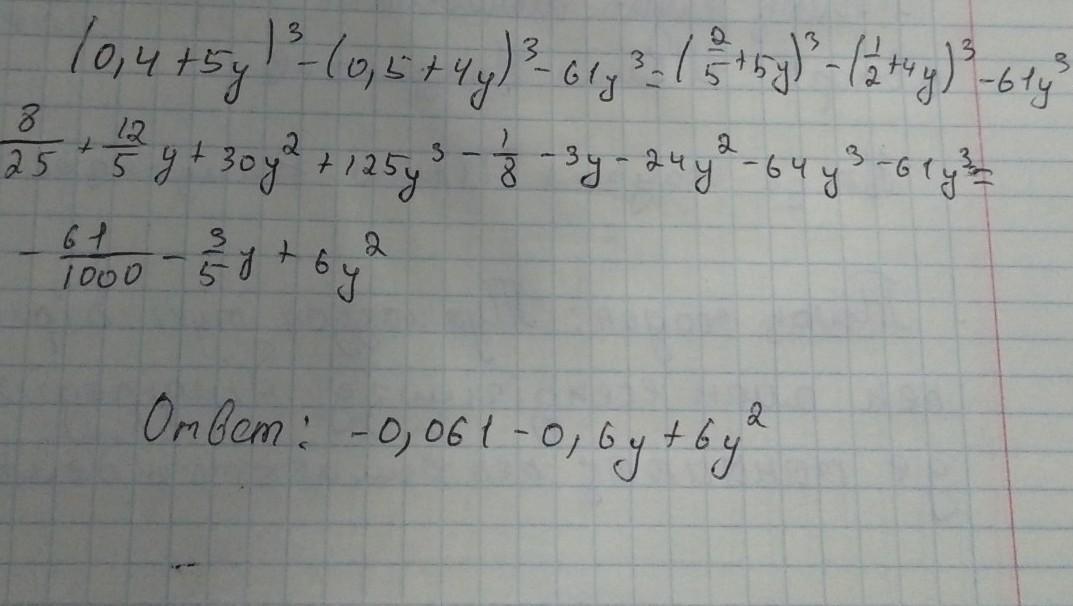 (0,4+5y)³-(0,5+4y)³-61y³=(2/5+5y)³-(1/2+4y)³-61y³
8/25+12/5y+30y²+125y³-1/8-3y-24y²-64y³-61y³=
-61/1000-3/5y+6y²
Ответ: -0,061-0,6y+6y²